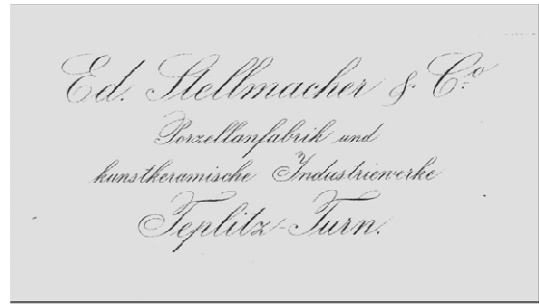 Ed. Stellmacher & Co
Porzellanfabrik und
kunstkeramische Industriewerke
Teplitz-Turn.